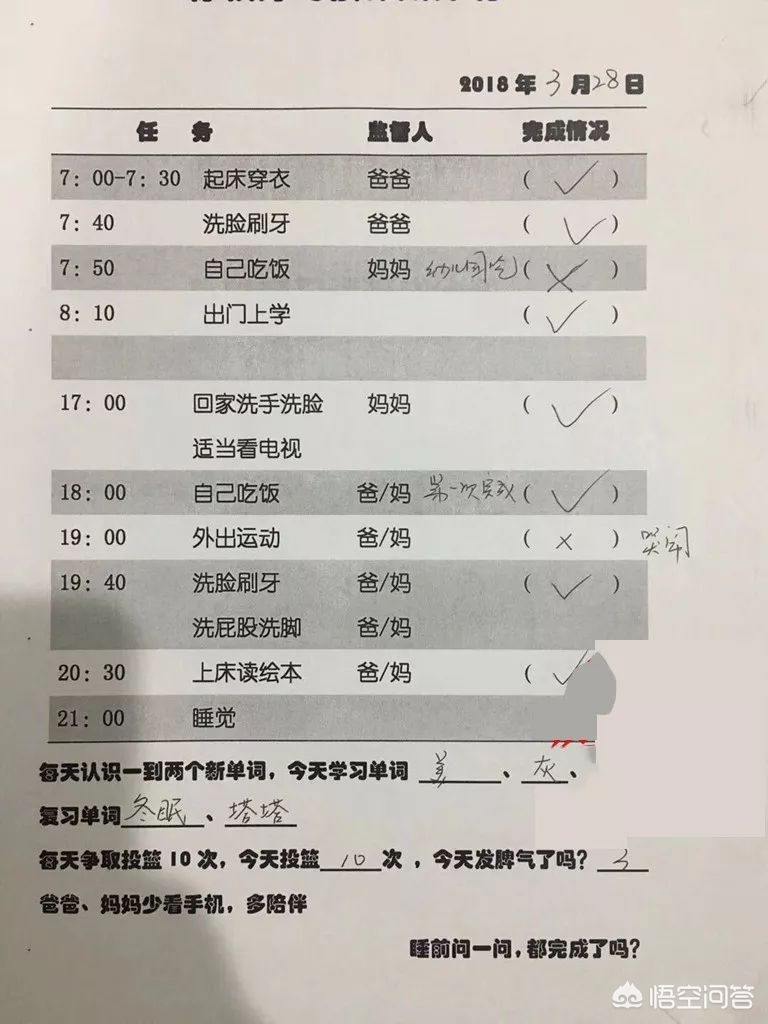 2018 年 3 月 28 日
任 务 监督人 完成情况
7：00-7：30 起床穿衣 爸爸 ( ✓ )
7：40 洗脸刷牙 爸爸 ( ✓ )
7：50 自己吃饭 妈妈 幼儿园吃 ( × )
8：10 出门上学 ( ✓ )
17：00 回家洗手洗脸 妈妈 ( ✓ )
适当看电视
18：00 自己吃饭 爸/妈 第一次完成 ( ✓ )
19：00 外出运动 爸/妈 ( × ) 哭闹
19：40 洗脸刷牙 爸/妈 ( ✓ )
洗屁股洗脚 爸/妈
20：30 上床读绘本 爸/妈 ( ✓
21：00 睡觉
每天认识一到两个新单词，今天学习单词 美 、 灰 、
复习单词 冬眠 、 塔塔
每天争取投篮 10 次，今天投篮 10 次 ，今天发脾气了吗？ 3
爸爸、妈妈少看手机，多陪伴
睡前问一问，都完成了吗？
悟空问答